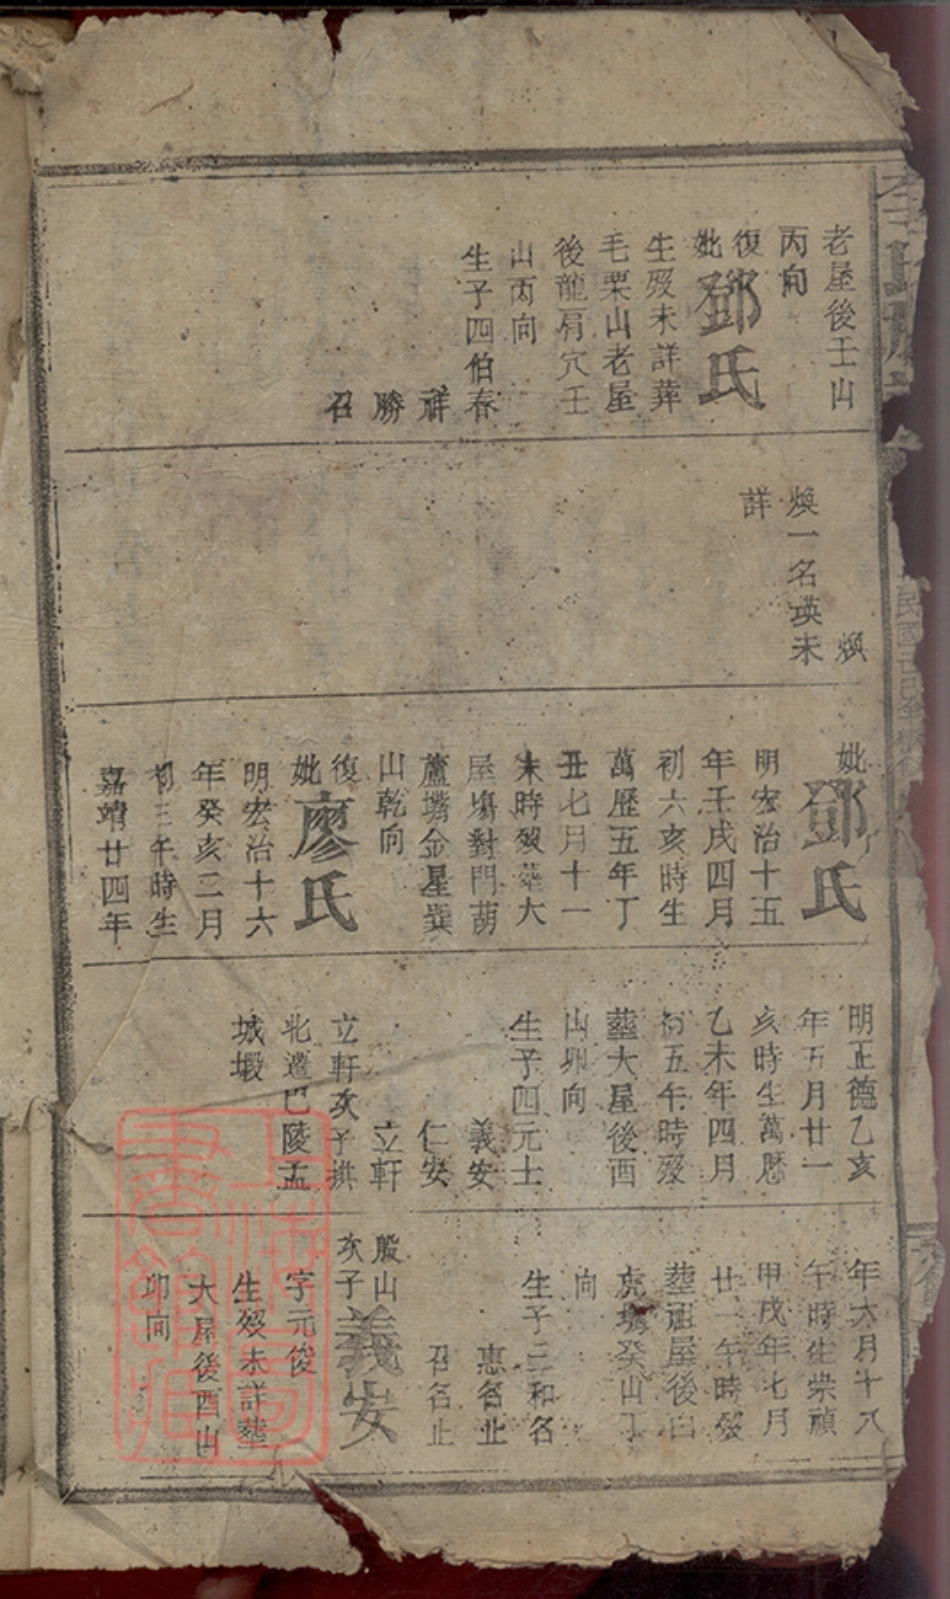 老屋後壬山
丙向
復
妣鄧氏
生歿未詳葬
毛栗山老屋
後龍肩穴壬
山丙向
生子四伯春
祥
勝
召
煥
煥一名瑛未
詳
妣鄧氏
明宏治十五
年壬戌四月
初六亥時生
萬歷五年丁
丑七月十一
未時歿葬大
屋塲對門葫
蘆塘金星巽
山乾向
復
妣廖氏
明宏治十六
年癸亥二月
初三午時生
嘉靖廿四年
明正德乙亥
年五月廿一
亥時生萬歷
乙未年四月
初五午時歿
葬大屋後酉
山卯向
生子四元士
義安
仁安
立軒
立軒次子拱
北遷巴陵孟
城塅
年六月十八
午時生崇禎
甲戌年七月
廿一午時歿
葬祖屋後白
虎塘癸山丁
向
生子三和名
惠名止
召名止
殷山
次子義安
字元俊
生歿未詳葬
大屋後酉山
卯向
上海圖書館藏